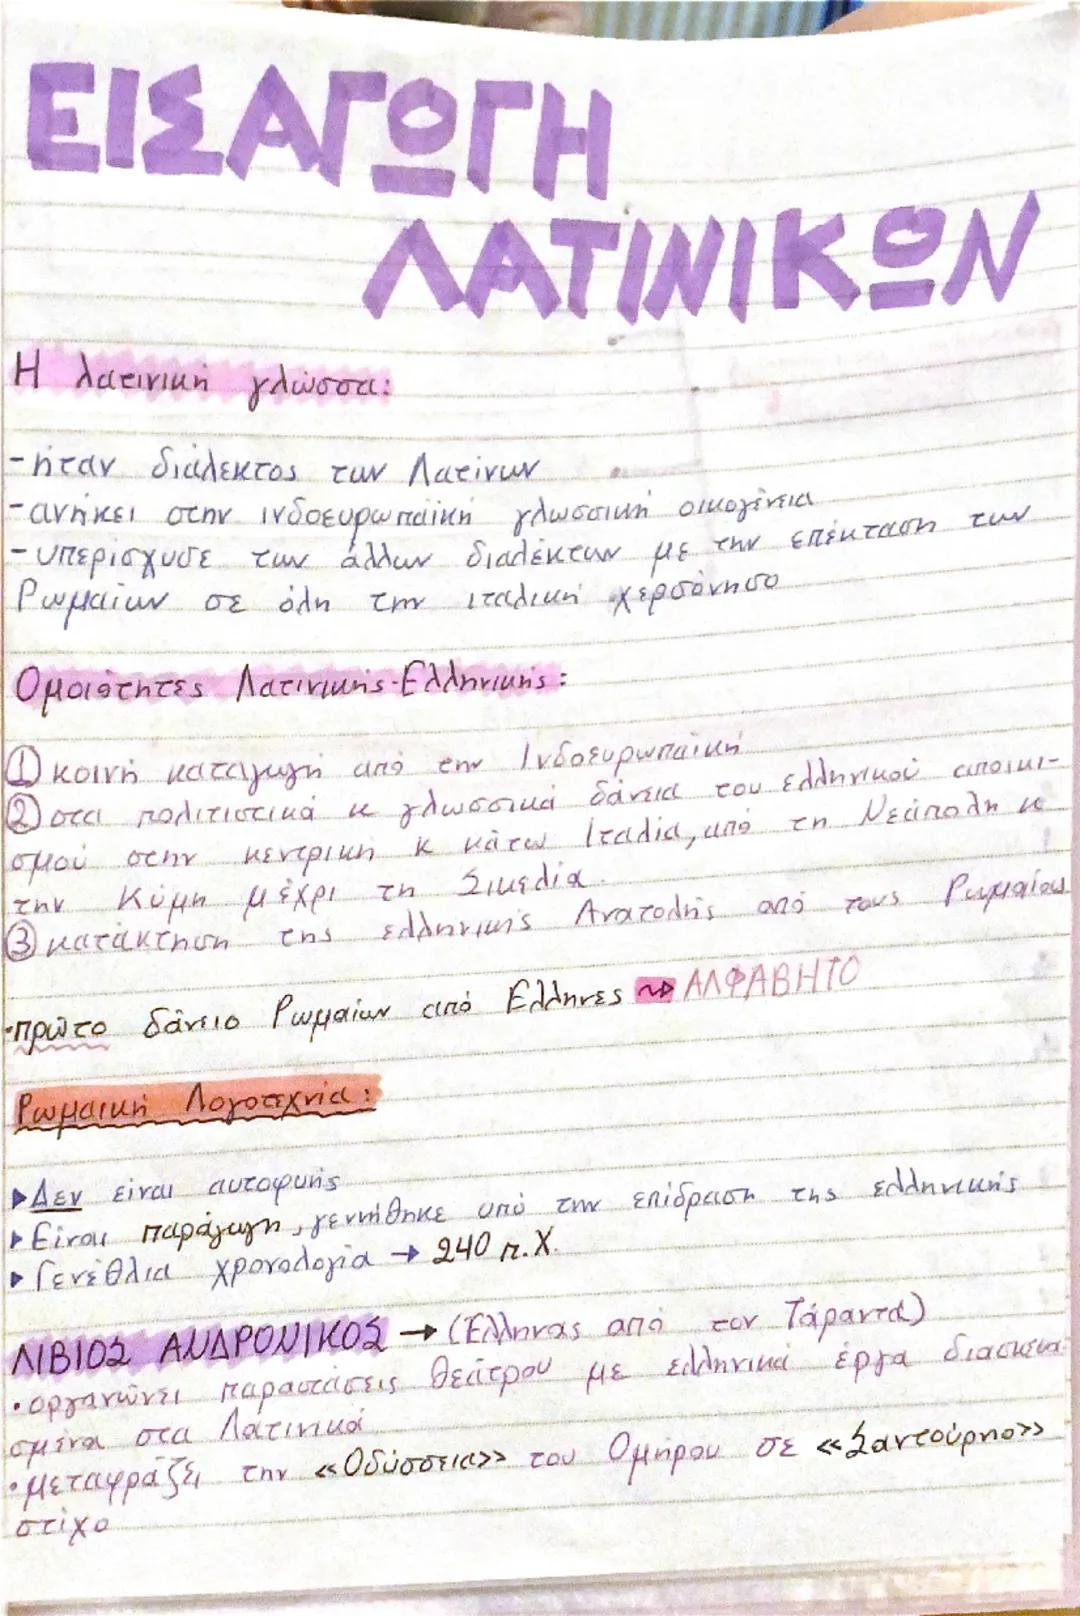 ΕΙΣΑΓΩΓΗ
ΛΑΤΙΝΙΚΩΝ
Η λατινική γλώσσα:
-ήταν διάλεκτος των Λατίνων
-ανήκει στην ινδοευρωπαϊκή γλωσσική οικογένεια
-υπερίσχυσε των άλλων διαλέκτων με την επέκταση των
Ρωμαίων σε όλη την ιταλική χερσόνησο
Ομοιότητες Λατινικής-Ελληνικής:
① κοινή καταγωγή από την Ινδοευρωπαϊκή
② στα πολιτιστικά κ γλωσσικά δάνεια του ελληνικού αποικι-
σμού στην κεντρική κ κάτω Ιταλία, από τη Νεάπολη κ
την Κύμη μέχρι τη Σικελία.
③ κατάκτηση της ελληνικής Ανατολής από τους Ρωμαίους
·πρώτο δάνειο Ρωμαίων από Έλληνες ⇝ ΑΛΦΑΒΗΤΟ
Ρωμαϊκή Λογοτεχνία:
▸Δεν είναι αυτοφυής
▸Είναι παράγωγη, γεννήθηκε υπό την επίδραση της ελληνικής
▸Γενέθλια χρονολογία → 240 π.Χ.
ΛΙΒΙΟΣ ΑΝΔΡΟΝΙΚΟΣ → (Έλληνας από τον Τάραντα)
·οργανώνει παραστάσεις θεάτρου με ελληνικά έργα διασκευα-
σμένα στα Λατινικά
·μεταφράζει την «Οδύσσεια» του Ομήρου σε «Σαντούρνιο»
στίχο